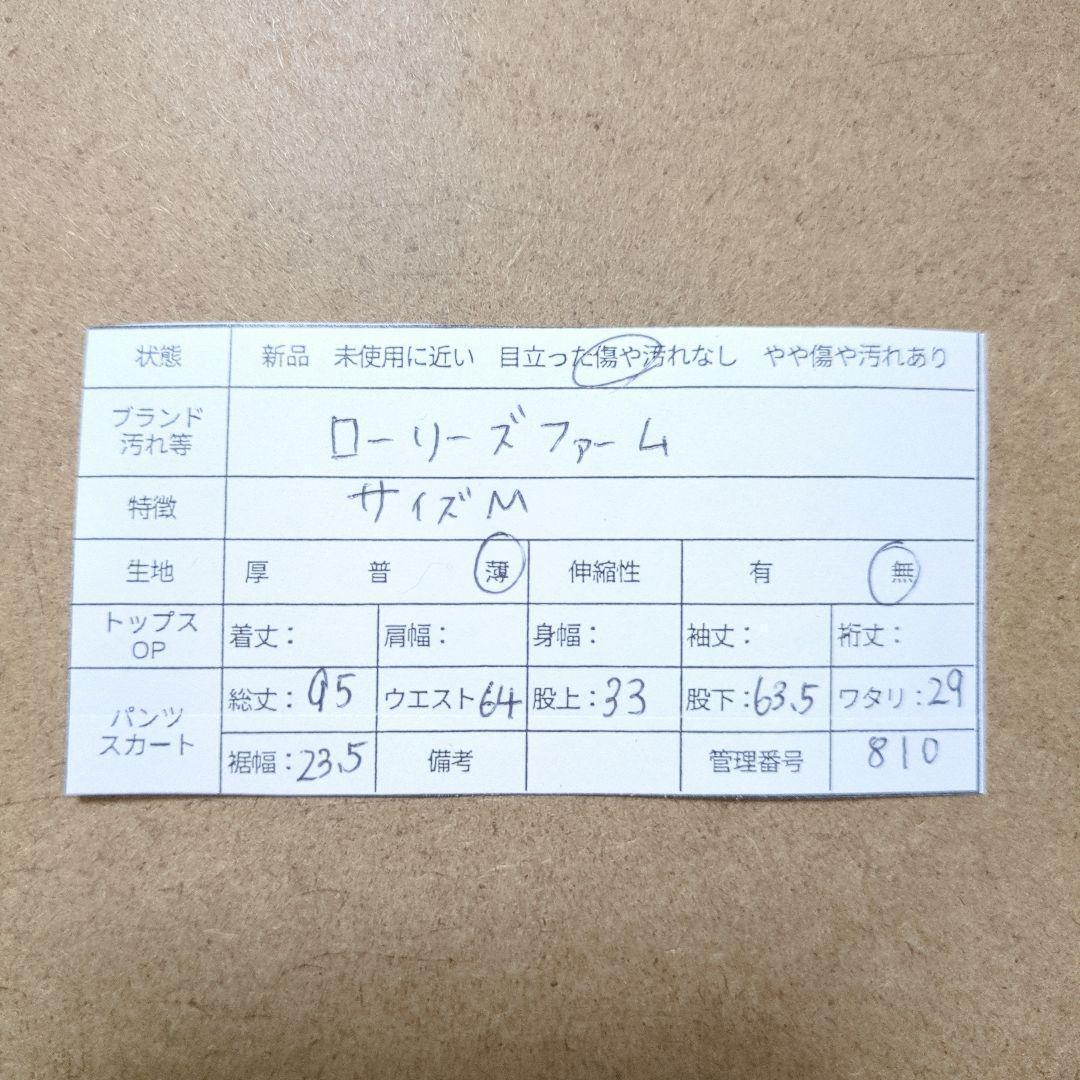 状態 新品 未使用に近い 目立った傷や汚れなし やや傷や汚れあり
ブランド
汚れ等 ローリーズファーム
特徴 サイズM
生地 厚 普 薄 伸縮性 有 無
トップス
OP 着丈： 肩幅： 身幅： 袖丈： 裄丈：
パンツ
スカート 総丈：95 ウエスト64 股上：33 股下：63.5 ワタリ：29
裾幅：23.5 備考 管理番号 810